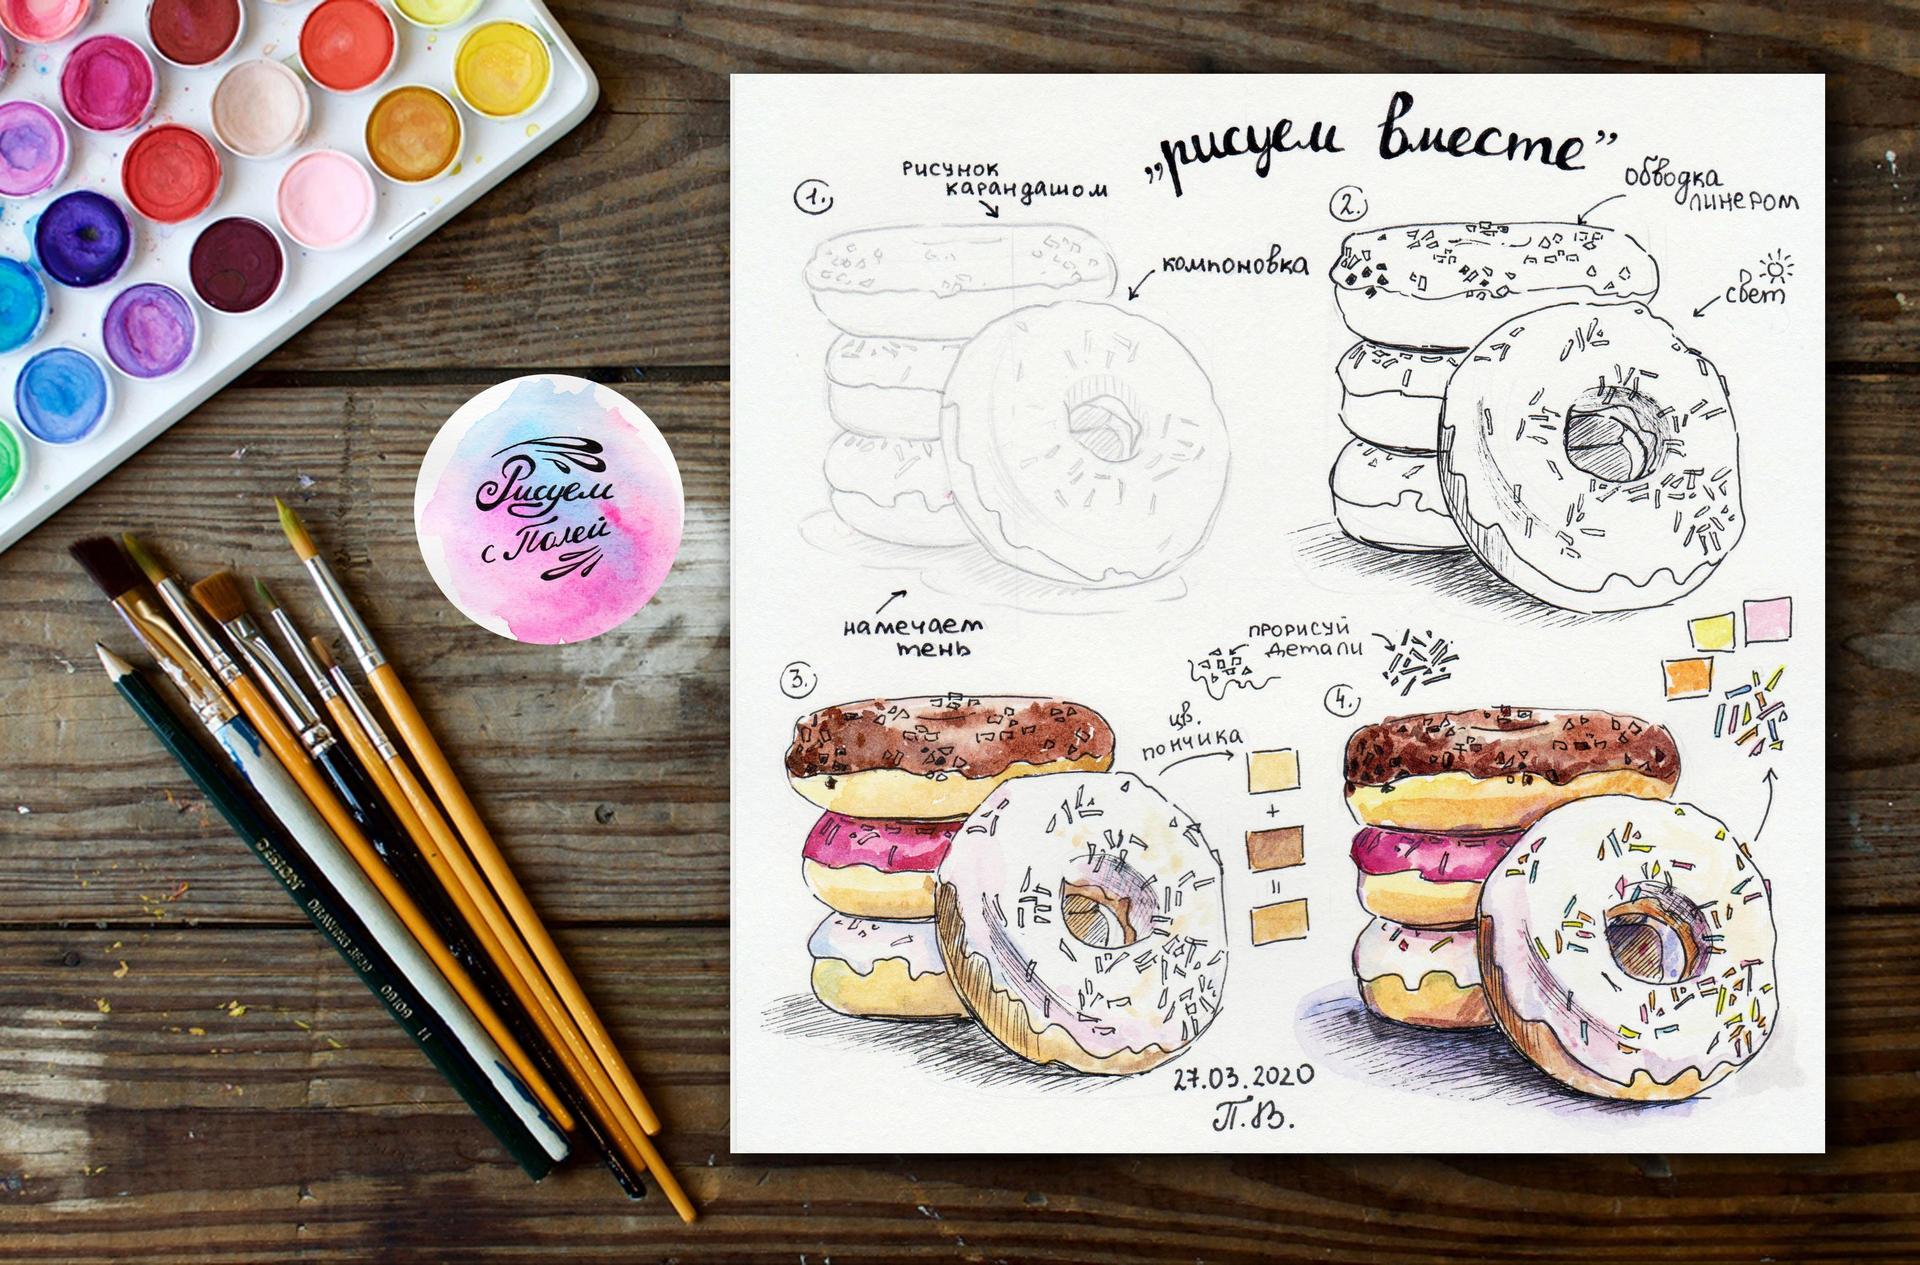 „рисуем вместе”
1.
рисунок
карандашом
компоновка
намечаем
тень
2.
обводка
линером
свет
прорисуй
детали
3.
цв.
пончика
+
=
4.
27.03.2020
П.В.
Рисуем
с Полей
DRAWING